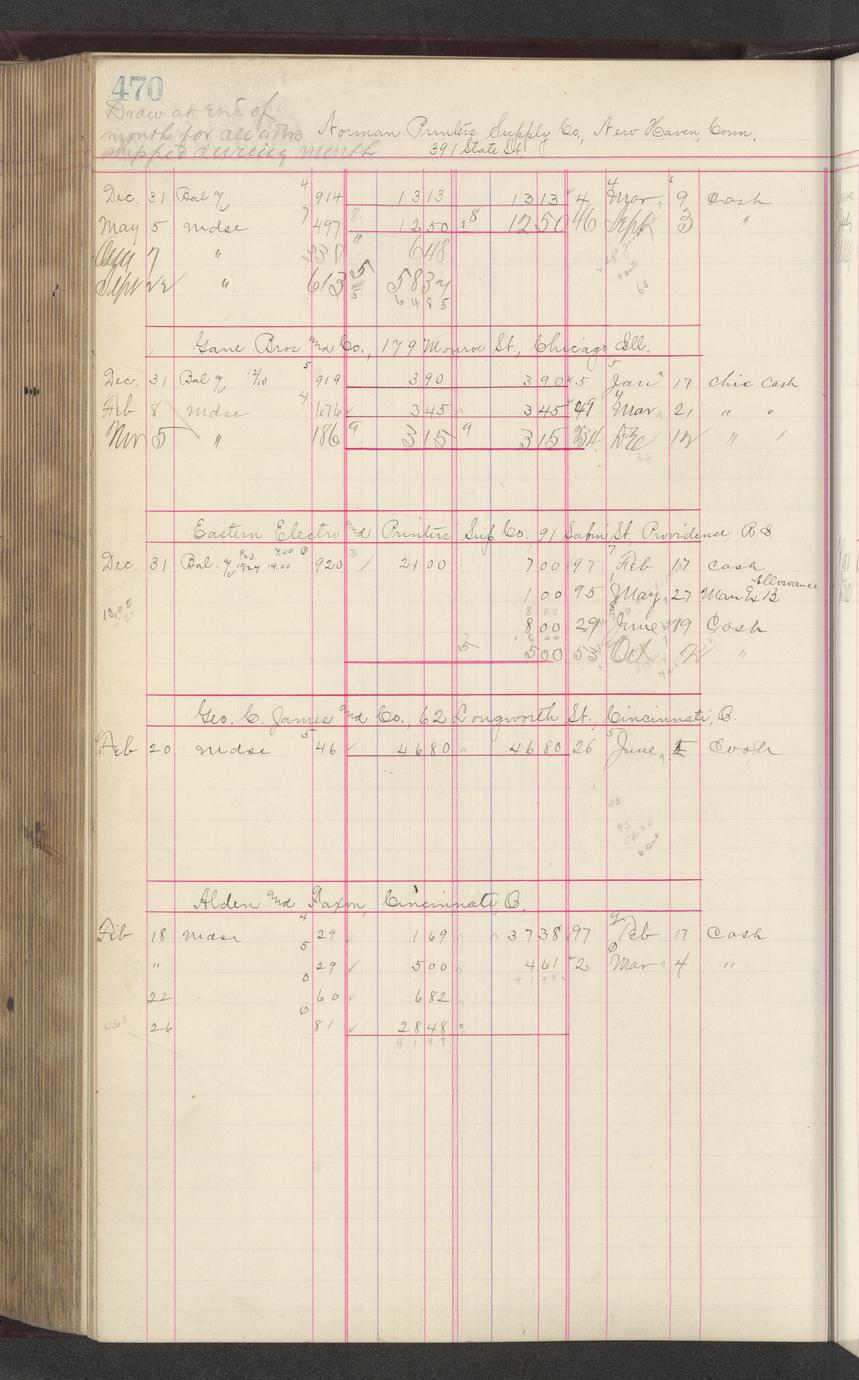 470
Draw at end of
month for all orders
shipped during month
Norman Printers Supply Co., New Haven, Conn.
391 State St.
Dec. 31 Bal 914 1313 1313 4 Mar 9 Cash
May 5 Mdse 497 1250 1250 46 Sept 3 "
Aug 7 " 338 648
Sept 22 " 613 5837
6485
Gane Bros and Co., 179 Monroe St., Chicago Ill.
Dec. 31 Bal 12/10 919 390 390 5 Jan 17 Chic Cash
Feb 8 Mdse 676 345 345 49 Mar 21 " "
Nov 5 " 186 315 315 Dec 12 " "
Eastern Electro and Printers Sup Co., 91 Sabin St. Providence, R.I.
Dec. 31 Bal. 9/23 7.00 12/24 14.00 920 2100 700 97 Feb 17 Cash
100 95 May 27 Man Ex B Allowance
13.00
800
800 29 June 19 Cash
500 53 Oct 2 "
Geo. C. James and Co., 62 Longworth St., Cincinnati, O.
Feb 20 Mdse 46 4680 4680 26 June 1 Cash
Alden and Faxon, Cincinnati, O.
Feb 18 Mdse 29 169 3738 97 Feb 17 Cash
" 29 500 461 2 Mar 4 "
4199
22 60 682
26 81 2848
4199